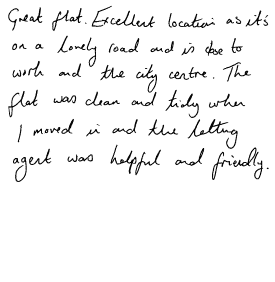 Great flat. Excellent location as it's
on a lovely road and is close to
work and the city centre. The
flat was clean and tidy when
I moved in and the letting
agent was helpful and friendly.